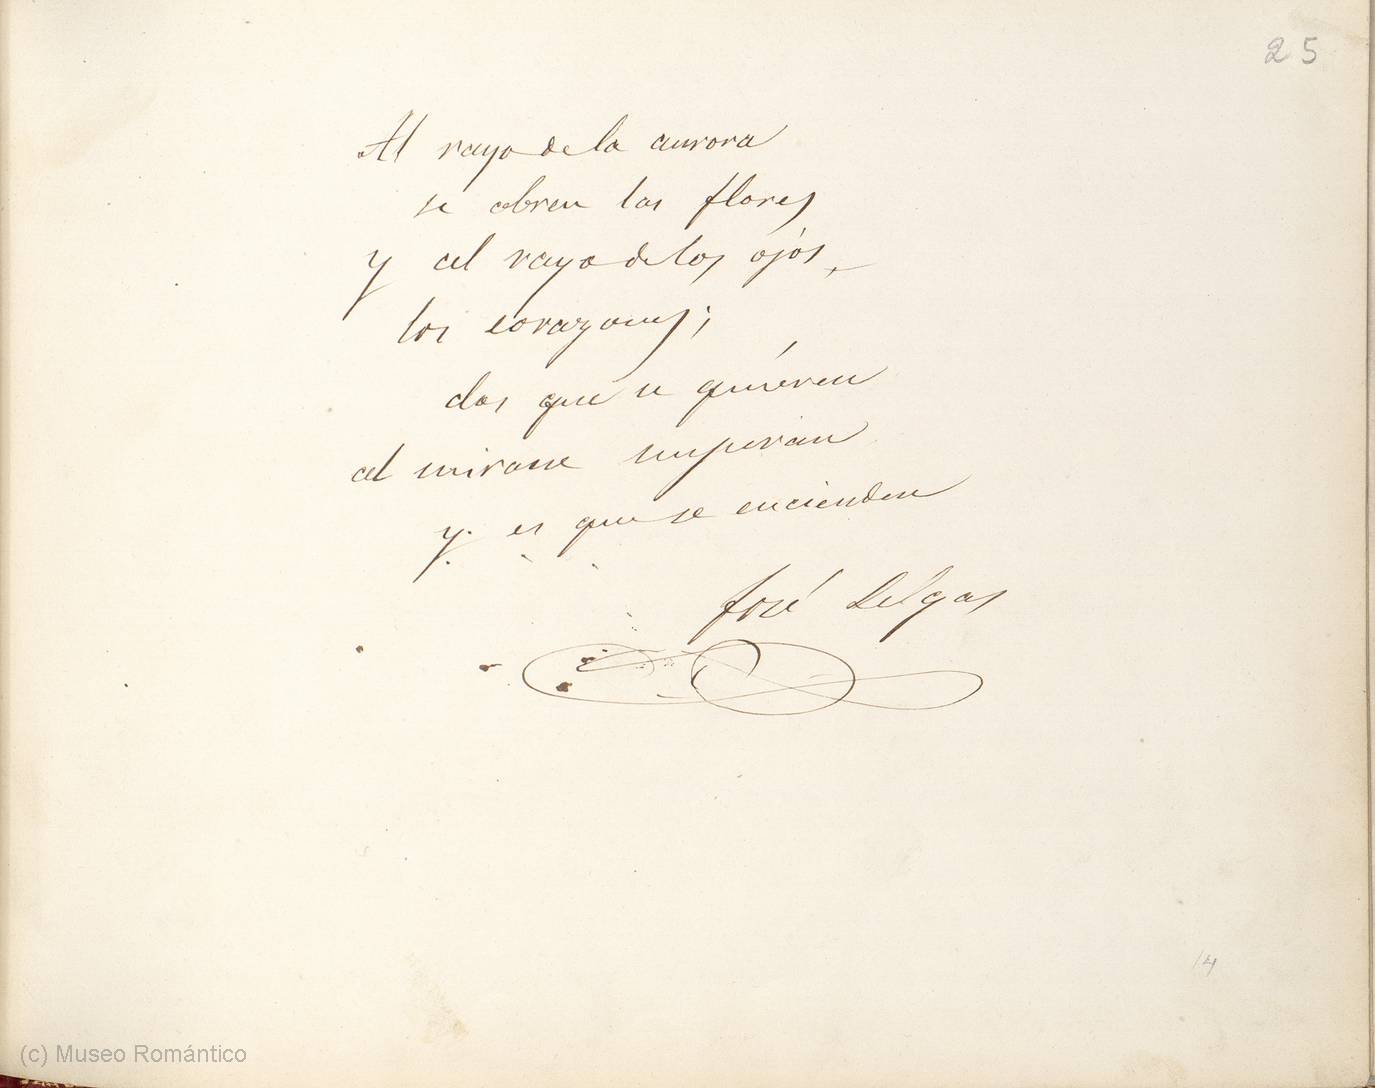 25
Al rayo de la aurora
se abren las flores
y al rayo de los ojos,
los corazones;
dos que se quieren
al mirarse suspiran
y es que se encienden
José Selgas
14
(c) Museo Romántico